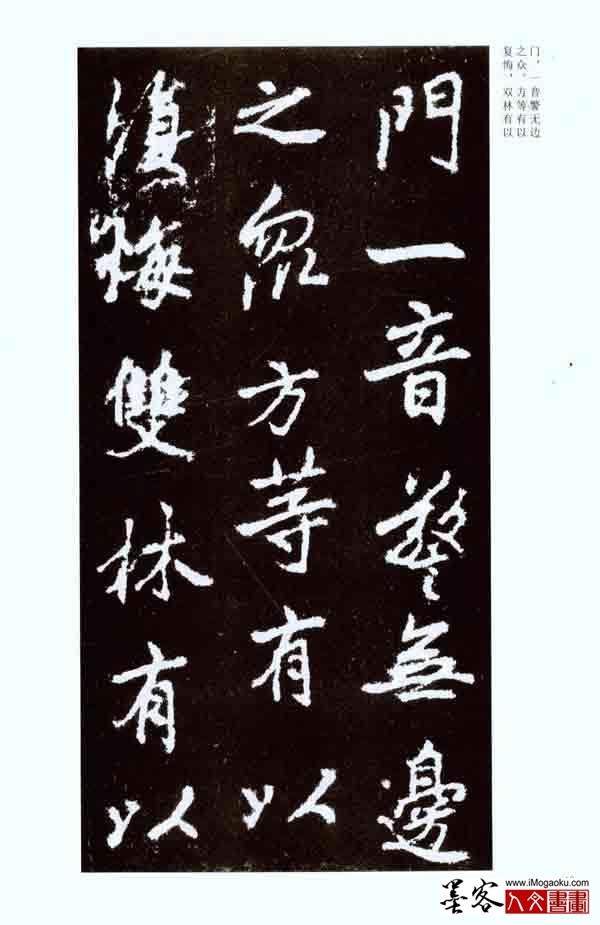 门，一音警无边
之众，方等有以
复悔，双林有以
門一音警無邊
之眾方等有以
復悔雙林有以
墨客
www.iMogaoku.com
人文書畫